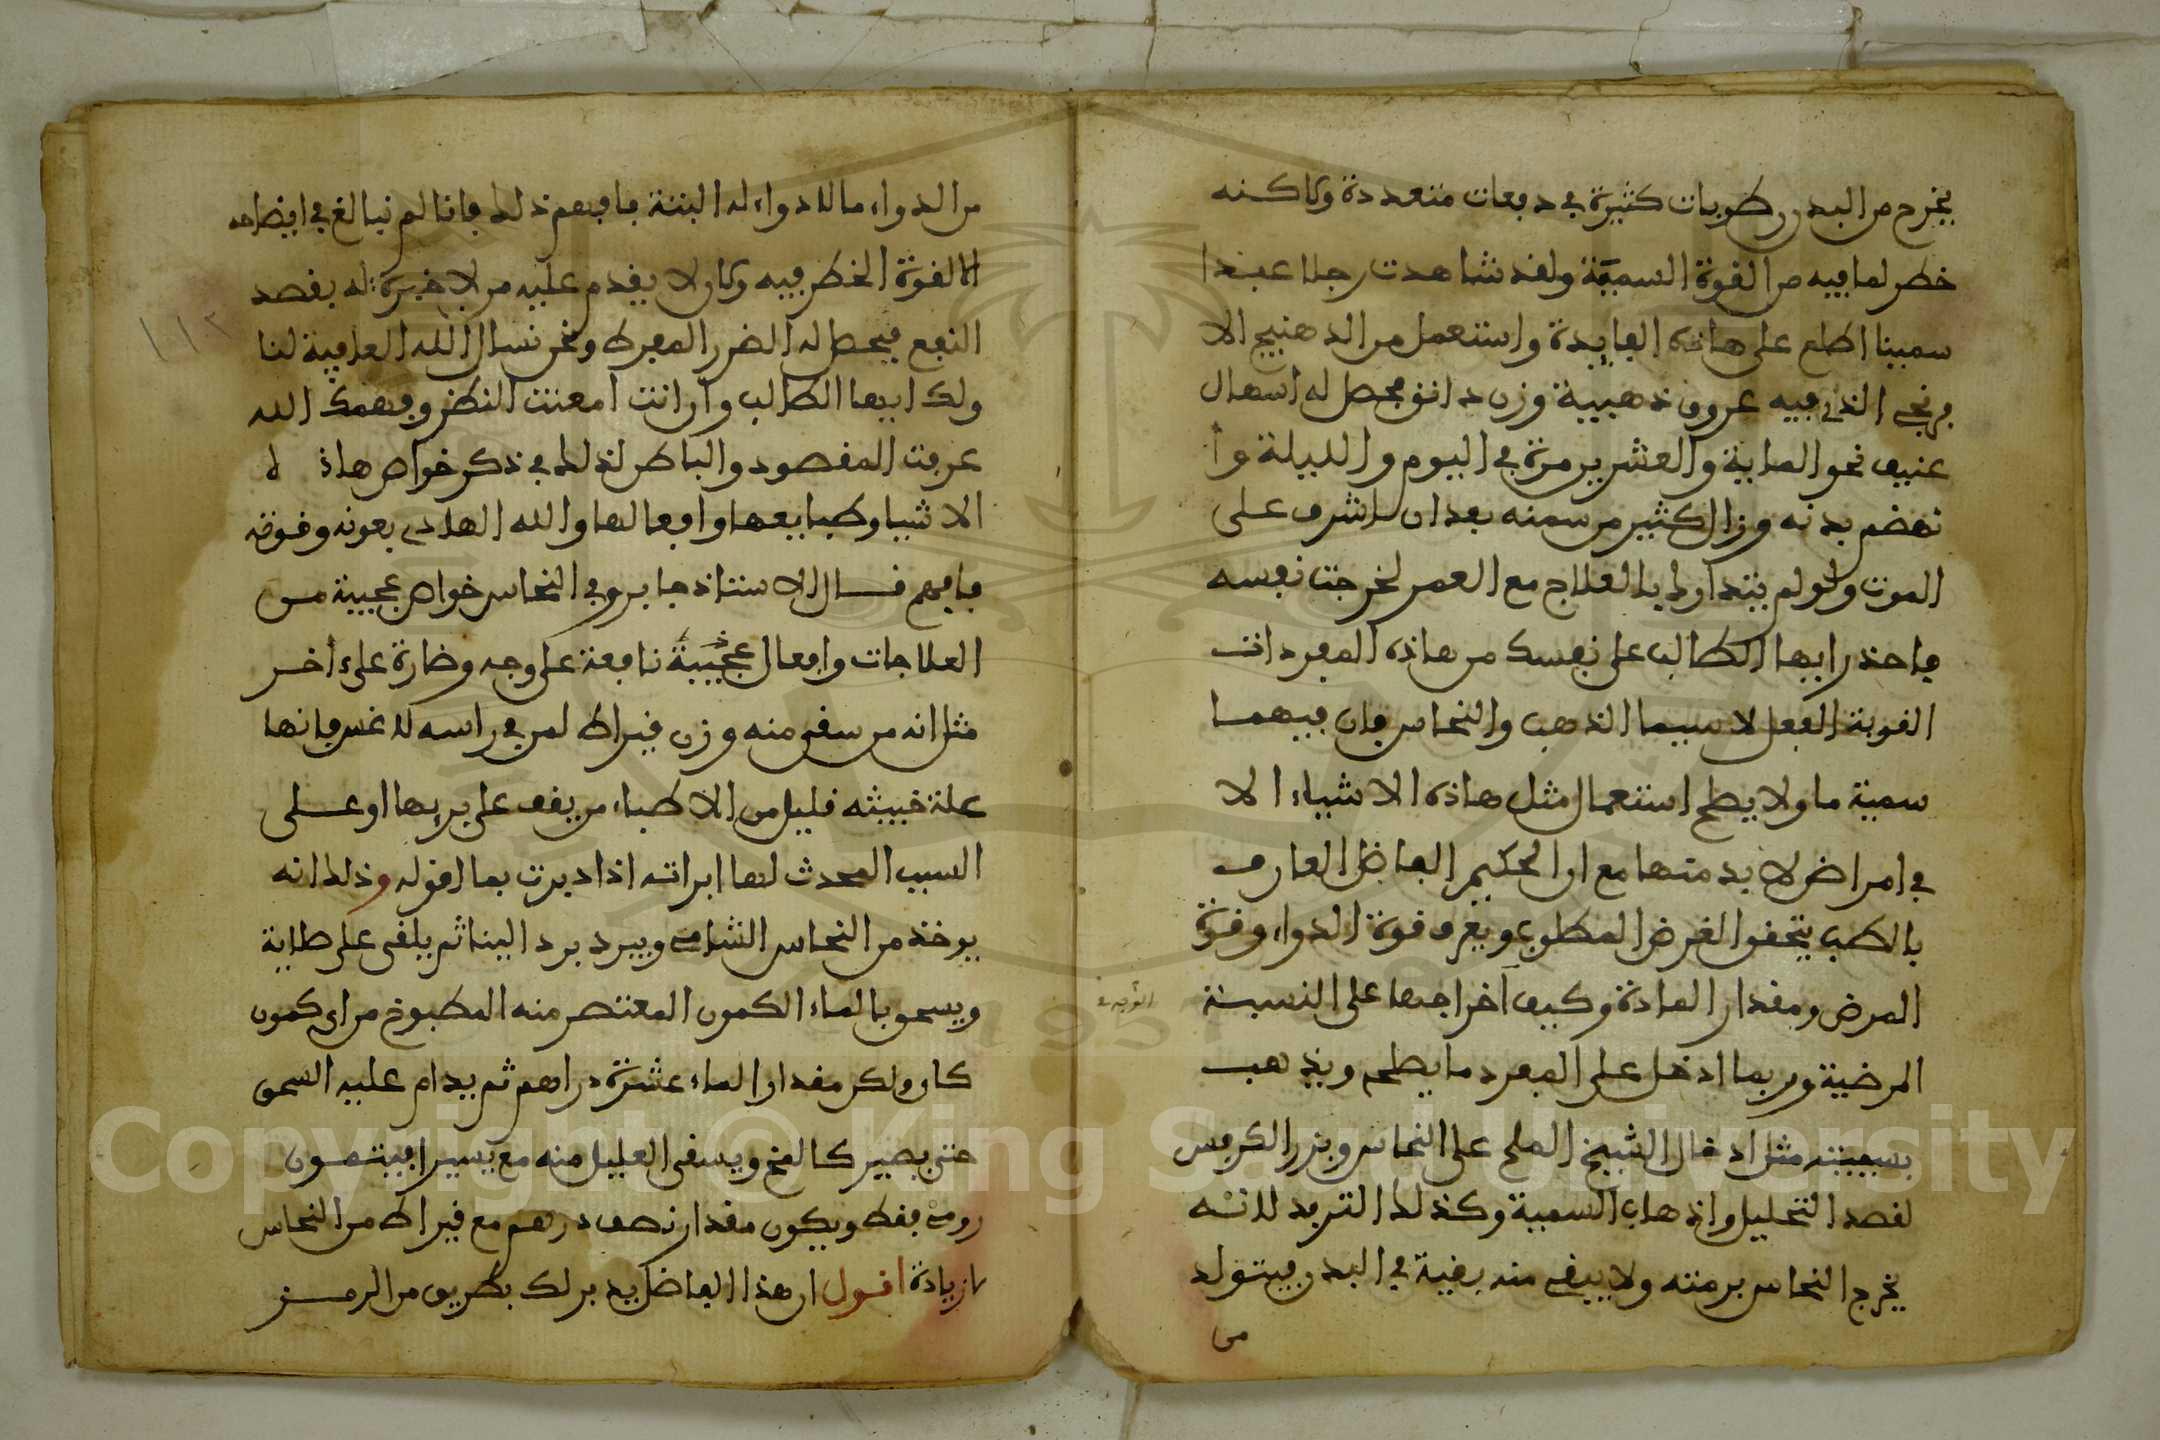 يخرج من البدن رطوبات كثيرة في دفعات متعددة ولاكنه
خطر لما فيه من القوة السمية ولقد شاهدت رجلا عبدا
سمينا اطلع على هاذه الفايدة واستعمل من الدهنيج الا
فرنجي الذي فيه عروق ذهبية وزن دانق فحصل له اسهال
عنيف نحو الماية والعشرين مرة في اليوم والليلة وا
نهضم بدنه وزال الكثير من سمنه بعد ان اشرف على
الموت ولو لم يتدارك بالعلاج مع العمر لخرجت نفسه
فاحذر ايها الطالب على نفسك من هاذه المفردات
القوية الفعل لا سيما الذهب والنحاس فان فيهما
سمية ما ولا يصلح استعمال مثل هاذه الاشياء الا
في امراض لا بد منها مع ان الحكيم الفاضل العارف
بالطب يتحقق الغرض المطلوب ويعرف قوة الدواء وقوة
المرض ومقدار المادة وكيف اخراجها على النسبة
المرضية وربما ادخل على المفرد ما يصلحه ويذهب
بسميته مثل ادخال الشيخ الملح على النحاس وبزر الكرفس
لقصد التحليل واذهاب السمية وكذلك التربد لانه
يخرج النحاس برمته ولا يبقى منه بقية في البدن فيتولد
من
من الدواء ما لا دواء له البتة فافهم ذلك فاننا لم نبالغ في ايضاحه
الا لقوة الخطر فيه وكان لا يقدم عليه من لا خبرة له بقصد
النفع فيحصل له الضرر المفرط ونحن نسال الله العافية لنا
ولك ايها الطالب وان انت امعنت النظر وفهمك الله
عرفت المقصود والباطن لذلك في ذكر خواص هاذه
الاشيا وطبايعها وافعالها والله الهادي بعونه وقوته
فافهم قال الاستاذ جابر وفي النحاس خواص عجيبة من
العلاجات وافعال عجيبة نافعة على وجه وضارة على اخر
مثل انه من سقي منه وزن قيراط لمن في راسه فانها
علة خبيثه قليل من الاطباء من يقف على بريها او على
السبب المحدث لها ابراته اذا دبرت بما اقوله وذلك انه
يوخذ من النحاس الشامي ويبرد برد الينا ثم يلقى على صلاية
ويسحق بالماء الكمون المعتصر منه المطبوخ من اي كمون
كان وليكن مقدار الماء عشرة دراهم ثم يدام عليه السحق
حتى يصير كالمخ ويسقى العليل منه مع يسير افيثمون
رومي فقط ويكون مقدار نصف درهم مع قيراط من النحاس
لا زيادة اقول ان هذا الفاضل يدبر لك بطريق من الرمز